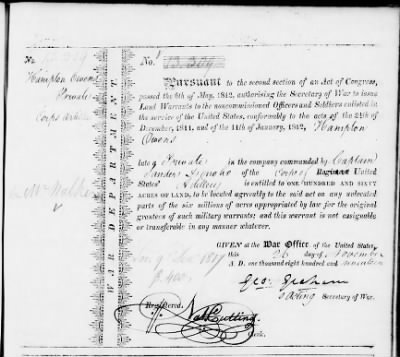 No.
Hampton Owens
Private
Corps
WAR DEPARTMENT
No. 13.309
Pursuant to the second section of an Act of Congress,
passed the 6th of May, 1812, authorising the Secretary of War to issue
Land Warrants to the noncommissioned Officers and Soldiers enlisted in
the service of the United States, conformably to the acts of the 24th
December, 1811, and of the 11th of January, 1812, Hampton
Owens
late a Private in the company commanded by Captain
Sanders of the Corps of Regiment United
States' Artillery is entitled to ONE HUNDRED AND SIXTY
ACRES OF LAND, to be located agreeably to the said act on any unlocated
parts of the six millions of acres appropriated by law for the original
grantees of such military warrants; and this warrant is not assignable
or transferable in any manner whatever.
GIVEN at the War Office of the United States,
this 26 day of November
A. D. one thousand eight hundred and seventeen
Geo: Graham
Acting Secretary of War.
Registered.
Nat Cutting
Clerk.